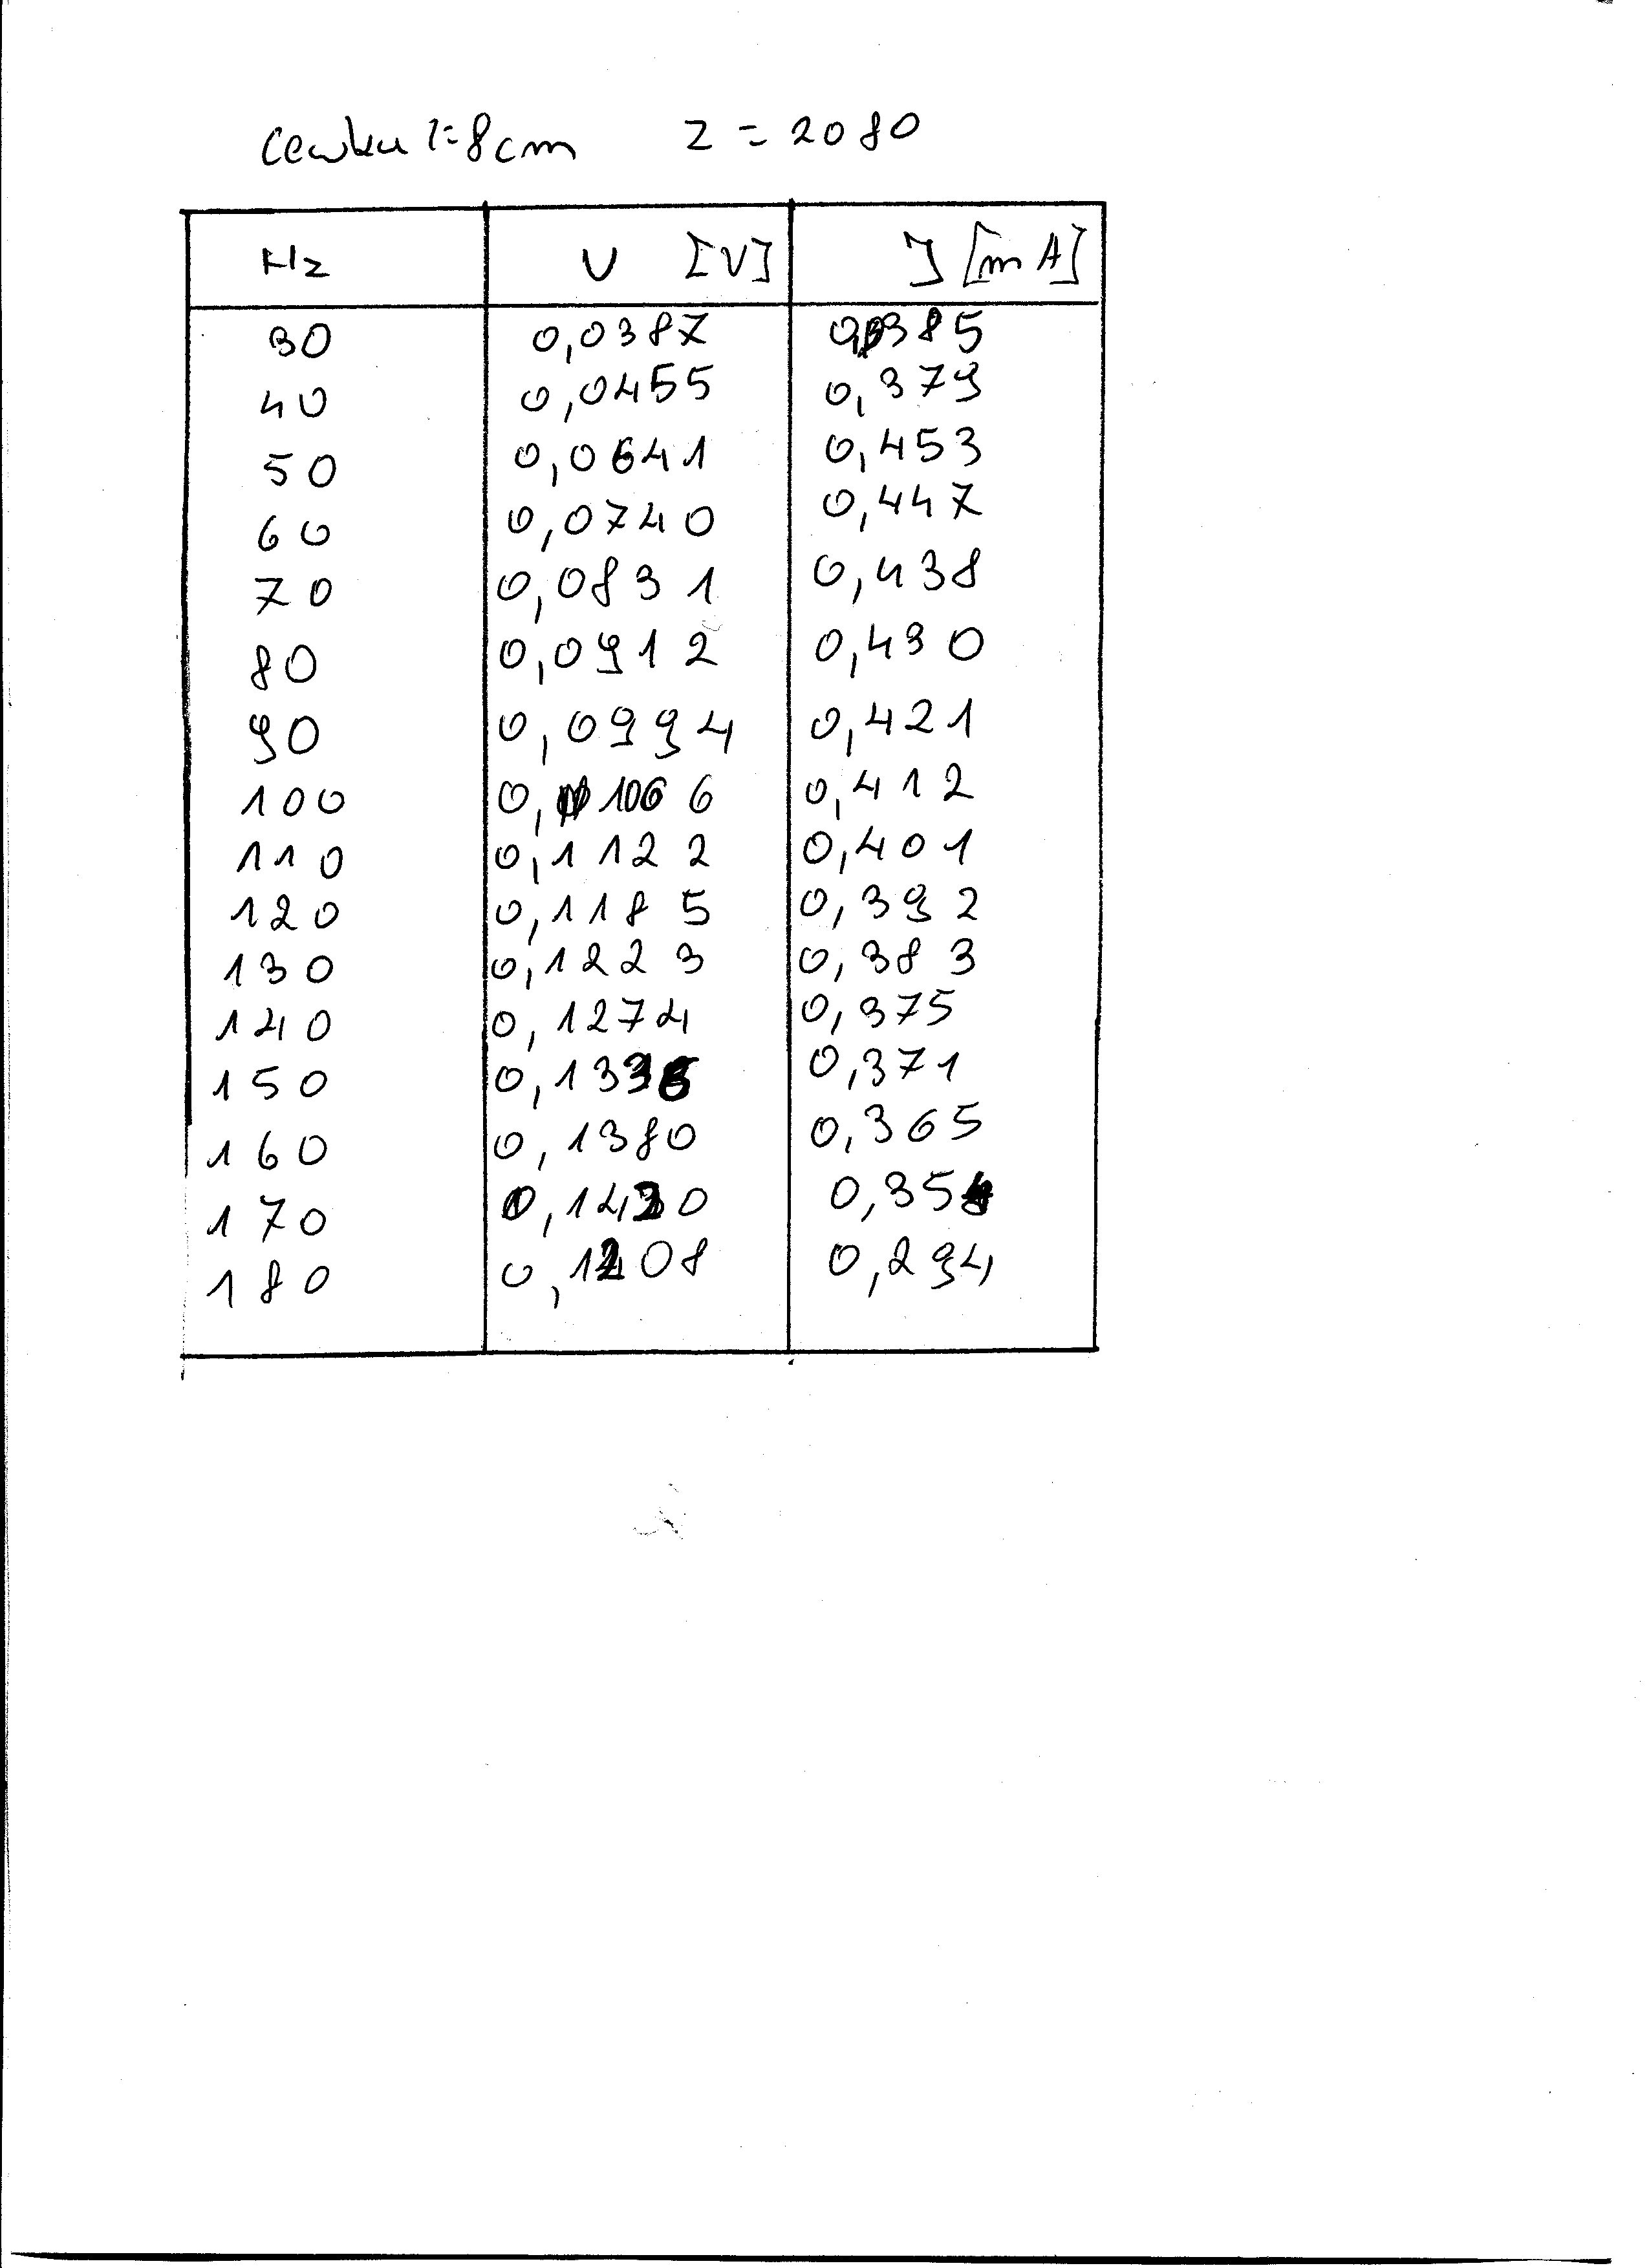 l=8cm z = 2080
Hz U [V] J [mA]
30 0,0387 0,385
40 0,0455 0,379
50 0,0641 0,453
60 0,0740 0,447
70 0,0831 0,438
80 0,0912 0,430
90 0,0994 0,421
100 0,1066 0,412
110 0,1122 0,401
120 0,1185 0,392
130 0,1223 0,383
140 0,1274 0,375
150 0,371
160 0,1380 0,365
170
180 0,294